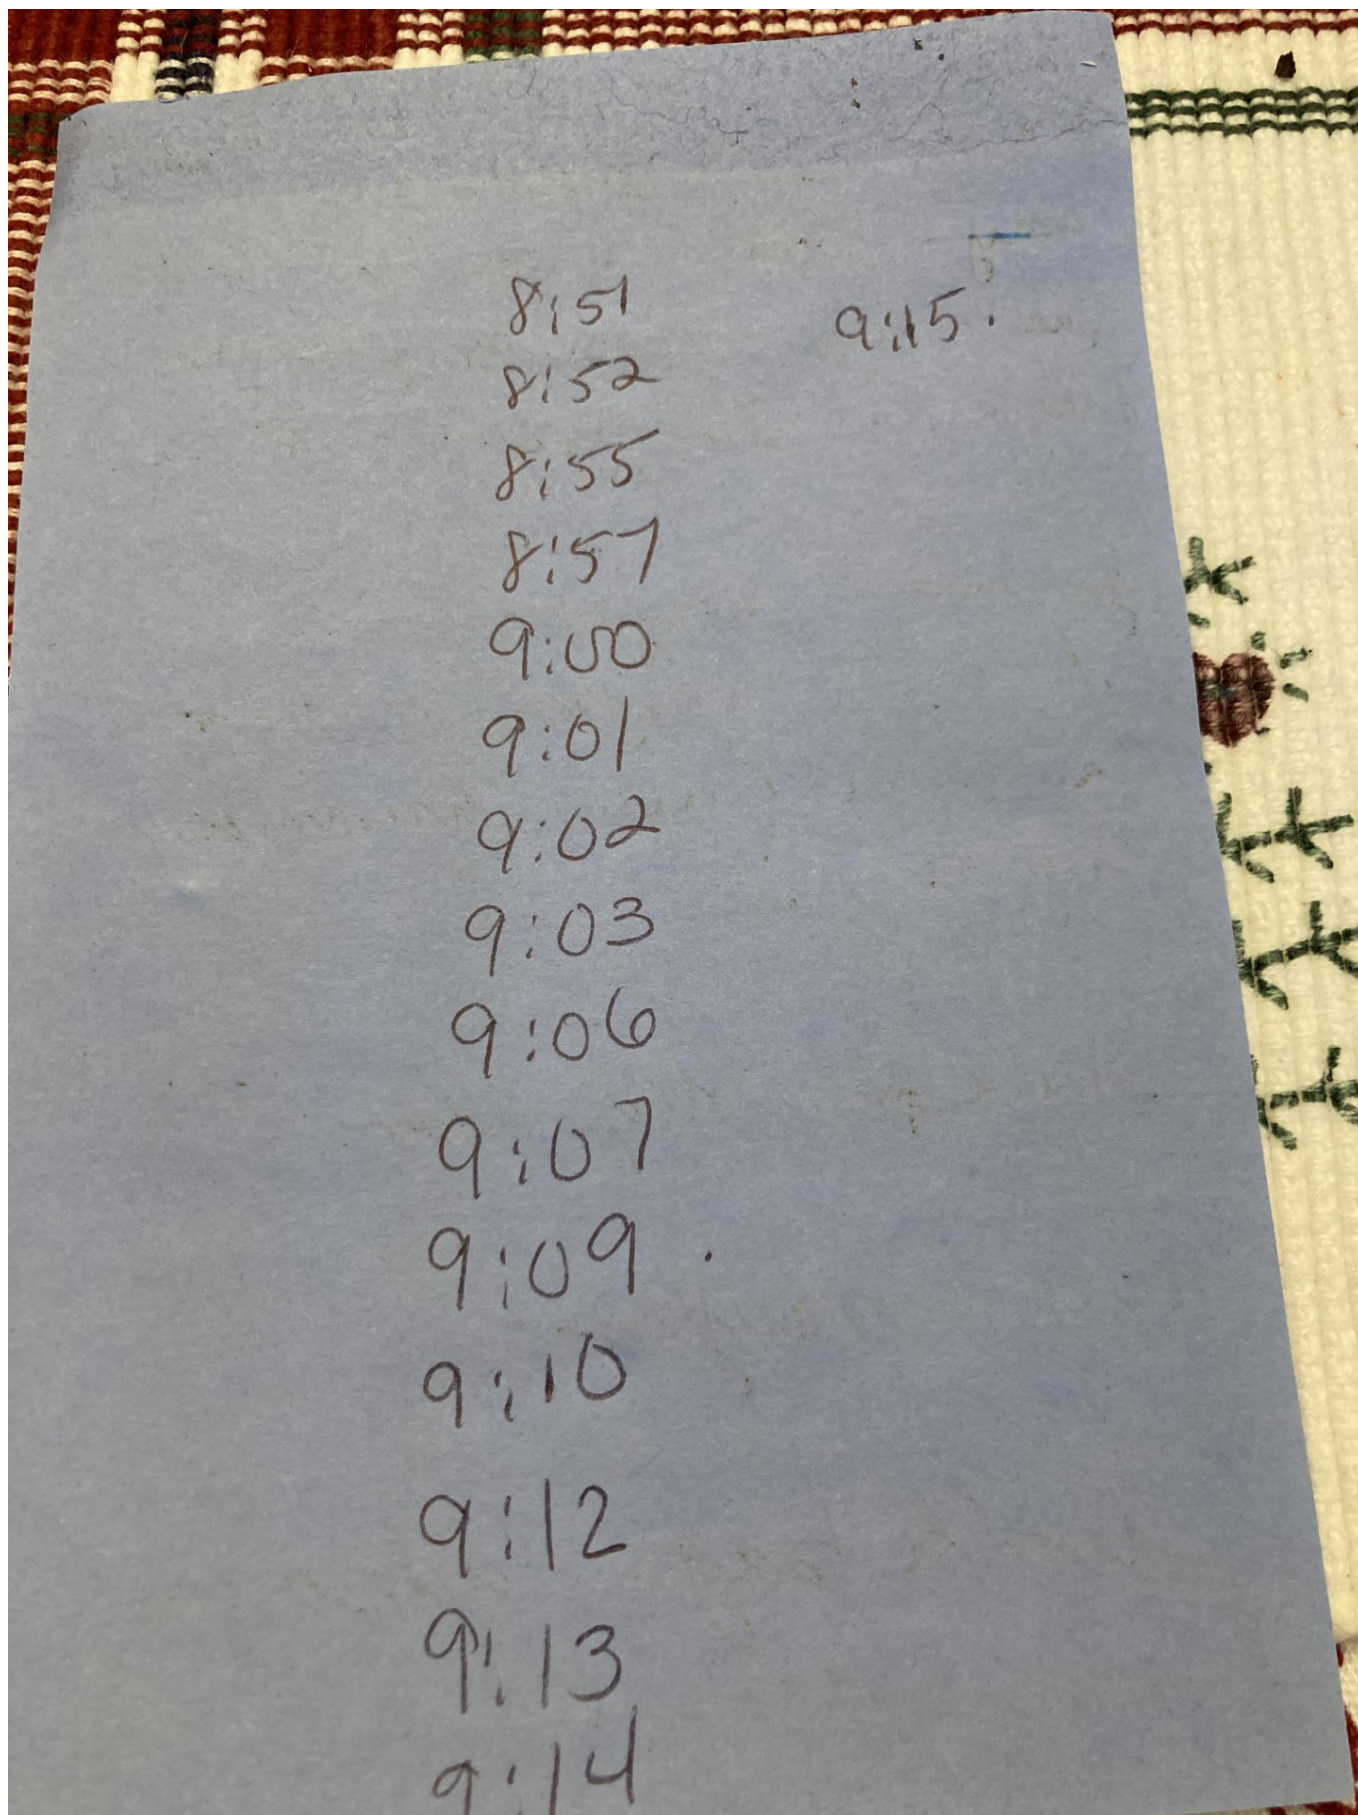 8:51
8:52
8:55
8:57
9:00
9:01
9:02
9:03
9:06
9:07
9:09 .
9:10
9:12
9:13
9:14
9:15.